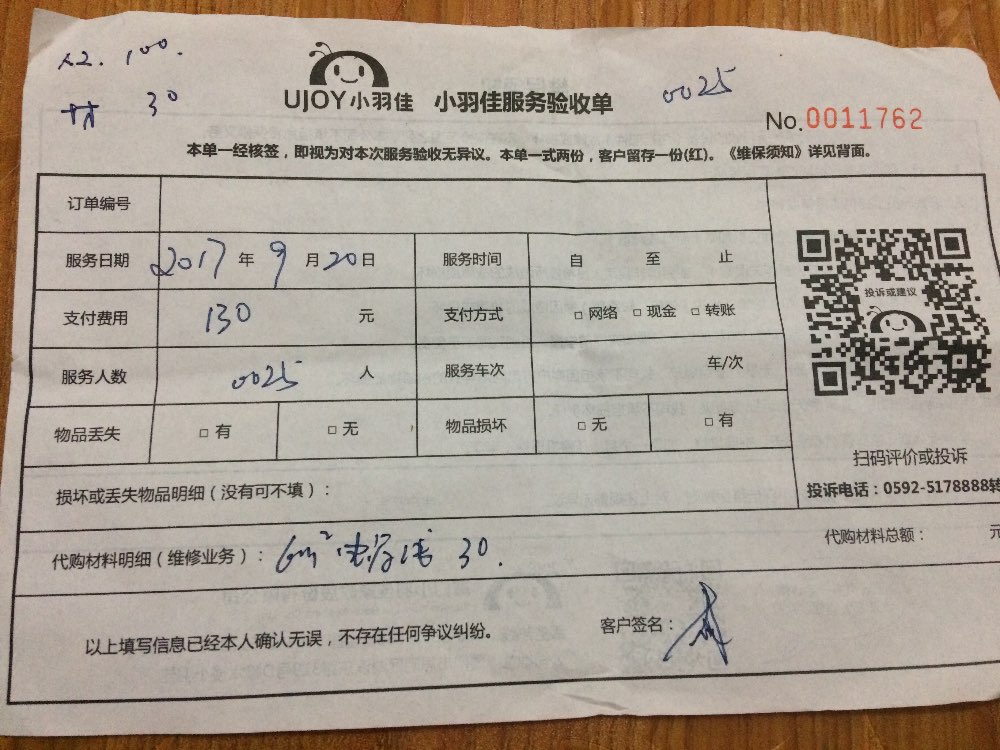 100.
30
UJOY小羽佳 小羽佳服务验收单 0025
No.0011762
本单一经核签，即视为对本次服务验收无异议。本单一式两份，客户留存一份(红)。《维保须知》详见背面。
订单编号
服务日期 2017 年 9 月 20 日 服务时间 自 至 止
支付费用 130 元 支付方式 □ 网络 □ 现金 □ 转账
投诉或建议
服务人数 0025 人 服务车次 车/次
物品丢失 □ 有 □ 无 物品损坏 □ 无 □ 有
扫码评价或投诉
投诉电话：0592-5178888转
损坏或丢失物品明细（没有可不填）：
代购材料明细（维修业务）： 6m² 30. 代购材料总额： 元
以上填写信息已经本人确认无误，不存在任何争议纠纷。 客户签名：